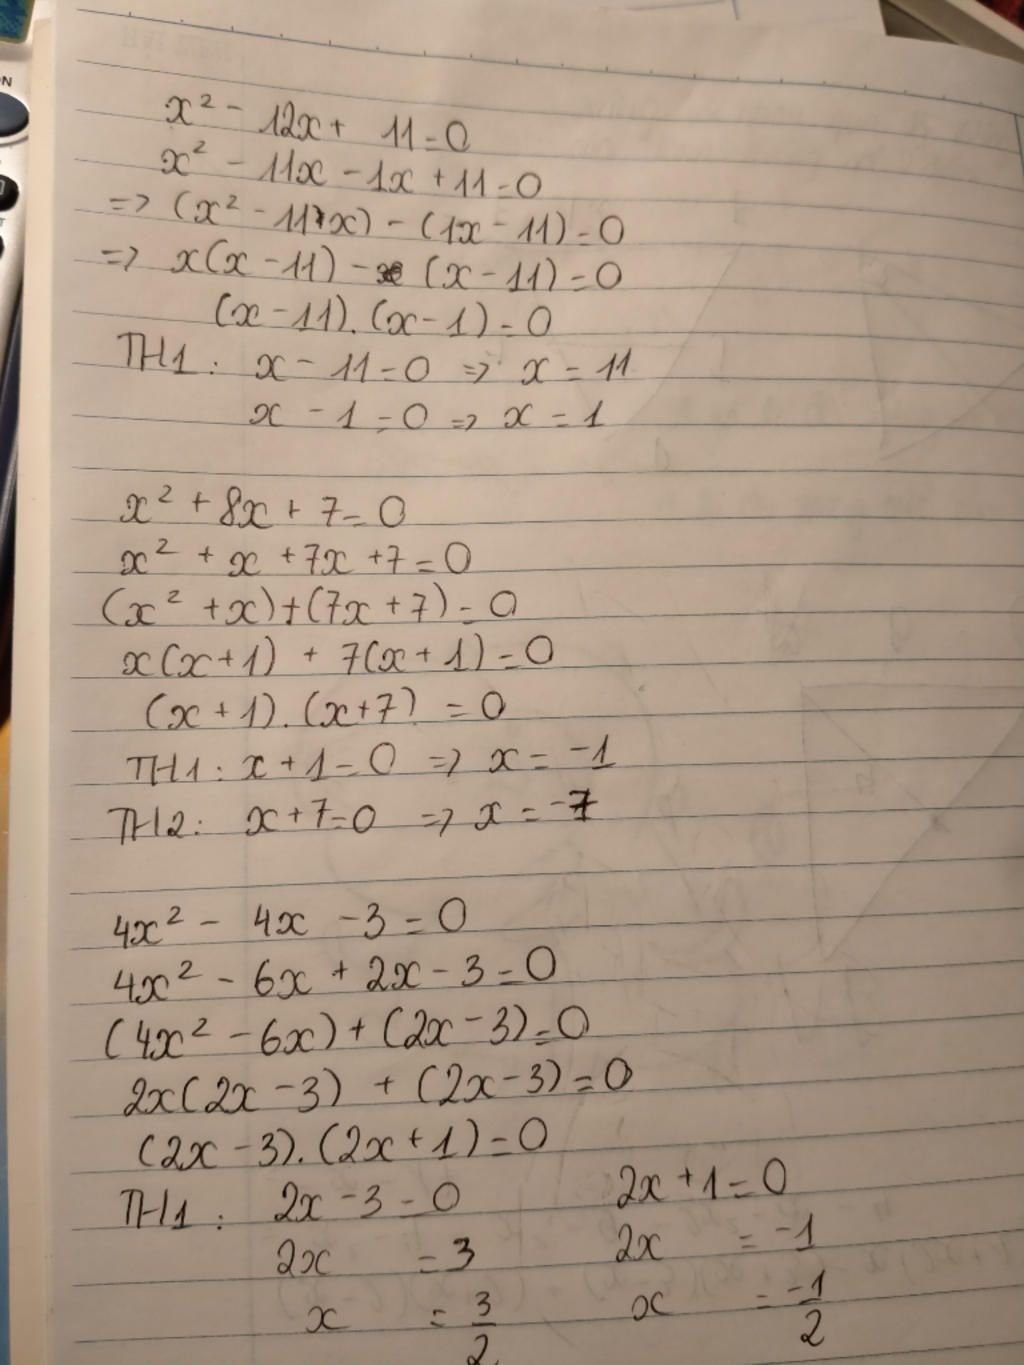 x² - 12x + 11 = 0
x² - 11x - 1x + 11 = 0
=> (x² - 11x) - (1x - 11) = 0
=> x(x - 11) - (x - 11) = 0
(x - 11).(x - 1) = 0
TH1: x - 11 = 0 => x = 11
x - 1 = 0 => x = 1
x² + 8x + 7 = 0
x² + x + 7x + 7 = 0
(x² + x) + (7x + 7) = 0
x(x + 1) + 7(x + 1) = 0
(x + 1).(x + 7) = 0
TH1: x + 1 = 0 => x = -1
TH2: x + 7 = 0 => x = -7
4x² - 4x - 3 = 0
4x² - 6x + 2x - 3 = 0
(4x² - 6x) + (2x - 3) = 0
2x(2x - 3) + (2x - 3) = 0
(2x - 3).(2x + 1) = 0
TH1: 2x - 3 = 0 2x + 1 = 0
2x = 3 2x = -1
x = 3/2 x = -1/2